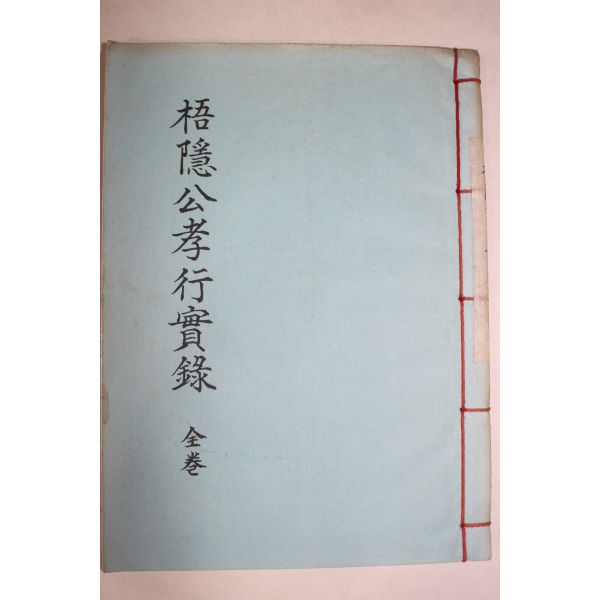 梧隱公孝行實錄 全巻